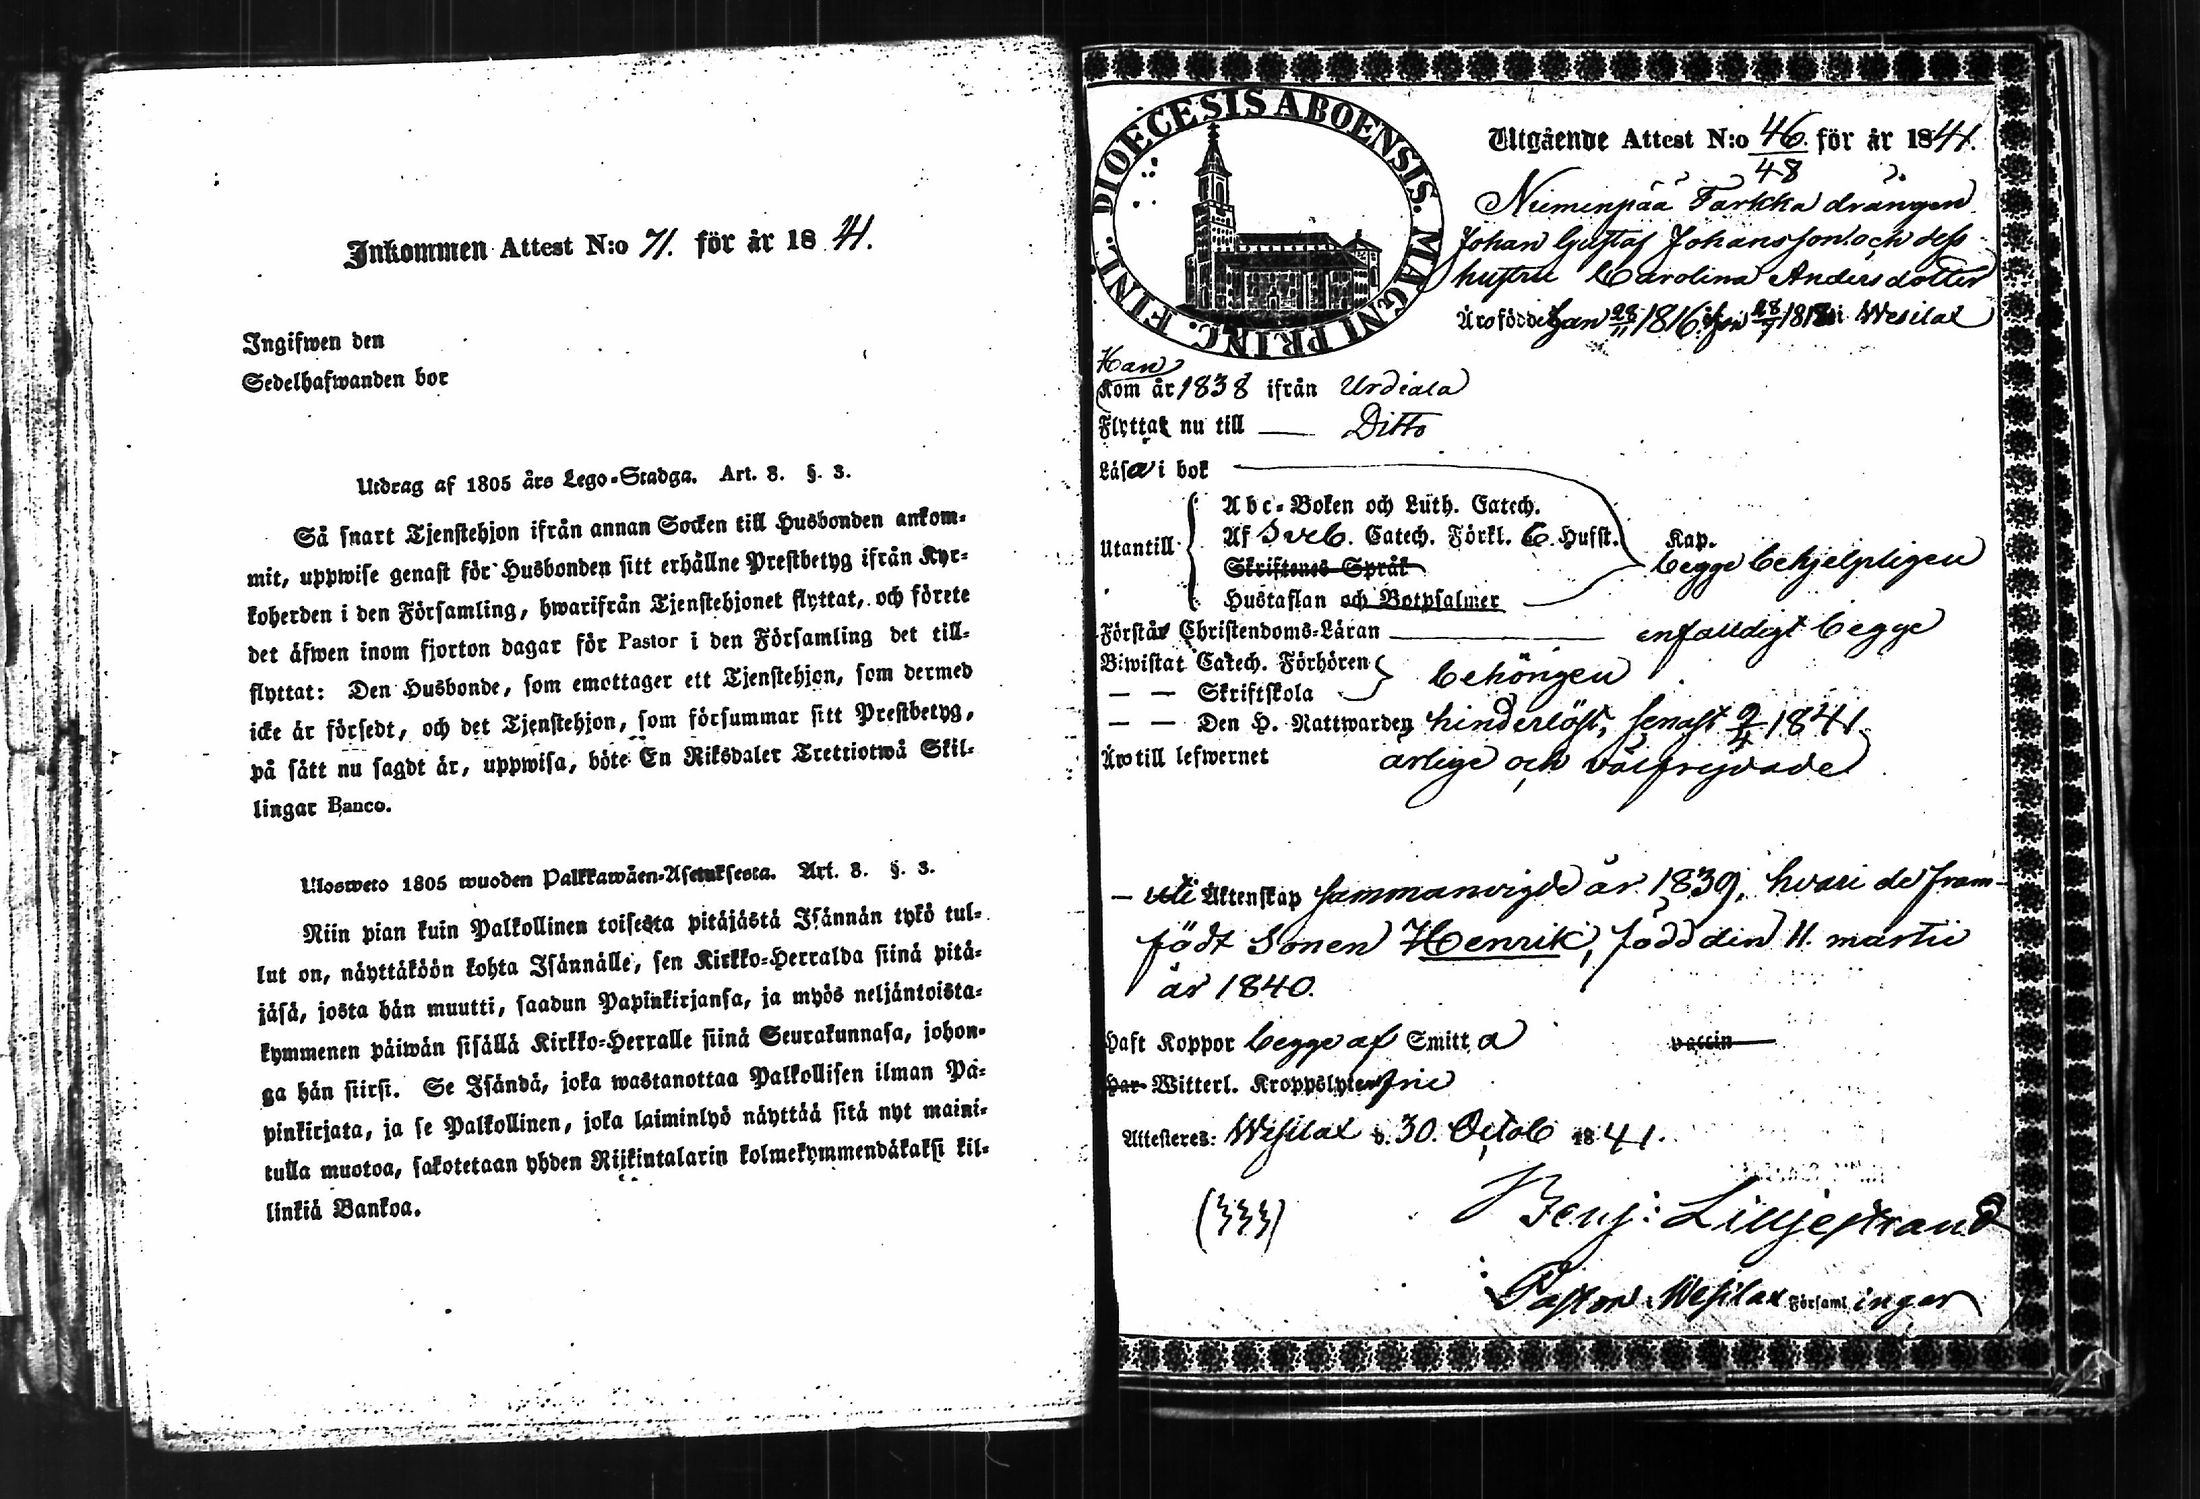 Inkommen Attest N:o 71. för år 1841.
Ingifwen den
Sedelhafwanden bor
Utdrag af 1805 års Lego-Stadga. Art. 8. §. 3.
Så snart Tjenstehjon ifrån annan Socken till Husbonden ankom-
mit, uppwise genast för Husbonden sitt erhållne Prestbetyg ifrån Kyr-
koherden i den Församling, hwarifrån Tjenstehjonet flyttat, och förete
det äfwen inom fjorton dagar för Pastor i den Församling det till-
flyttat: Den Husbonde, som emottager ett Tjenstehjon, som dermed
icke är försedt, och det Tjenstehjon, som försummar sitt Prestbetyg,
på sätt nu sagdt är, uppwisa, böte En Riksdaler Trettiotwå Skil-
lingar Banco.
Ulosweto 1805 wuoden Palkkawäen-Asetuksesta. Art. 8. §. 3.
Niin pian kuin Palkollinen toisesta pitäjästä Isännän tykö tul-
lut on, näyttäköön kohta Isännälle, sen Kirkko-Herralda siinä pitä-
jäsä, josta hän muutti, saadun Papinkirjansa, ja myös neljäntoista-
kymmenen päiwän sisällä Kirkko-Herralle siinä Seurakunnasa, johon-
ga hän siirsi. Se Isändä, joka wastanottaa Palkollisen ilman Pa-
pinkirjata, ja se Palkollinen, joka laiminlyö näyttää sitä nyt maini-
tulla muotoa, sakotetaan yhden Riikintalarin kolmekymmendäkaksi kil-
linkiä Bankoa.
DIOECESIS ABOENSIS. MAGNI PRINC. FINL.
Utgående Attest N:o 46. för år 1841.
48
Niemenpää Tarkka drängen
Johan Gustaf Johansson och dess
hustru Carolina Andersdotter
Äro födde han 28/11 1816, hon 28/7 1818 i Wesilax
Han
Kom år 1838 ifrån Urdiala
Flyttat nu till — Ditto
Läsa i bok
Utantill
Abc-Boken och Luth. Catech.
Af Sveb. Catech. Förkl. 6. Hufst. Kap.
Skriftenes Språk
begge behjelpligen
Hustaflan och Botpsalmer
Förstår Christendoms-Läran enfalldigt begge
Biwistat Catech. Förhören
— — Skriftskola
behörigen
— — Den H. Nattwarden hinderlöst, senast 9/4 1841.
Äro till lefwernet ärlige och välfrejdade
— uti Äktenskap sammanvigde år 1839, hvari de fram-
födt Sonen Henrik, född den 11. martii
år 1840.
Haft Koppor begge af Smitta vaccin
Har Witterl. Kroppslyten frie
Attesteres: Wesilax d. 30. Octob 1841.
Benj: Liljestrand
Pastor i Wesilax Församlingar